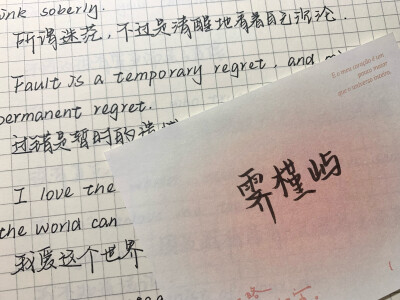 ink soberly.
所谓迷茫，不过是清醒地看着自己沉沦．
Fault is a temporary regret, and
permanent regret.
过错是暂时的遗
I love the
the world can
我爱这个世界
霁槿屿
É o meu coração é um
pouco maior
que o universo inteiro.